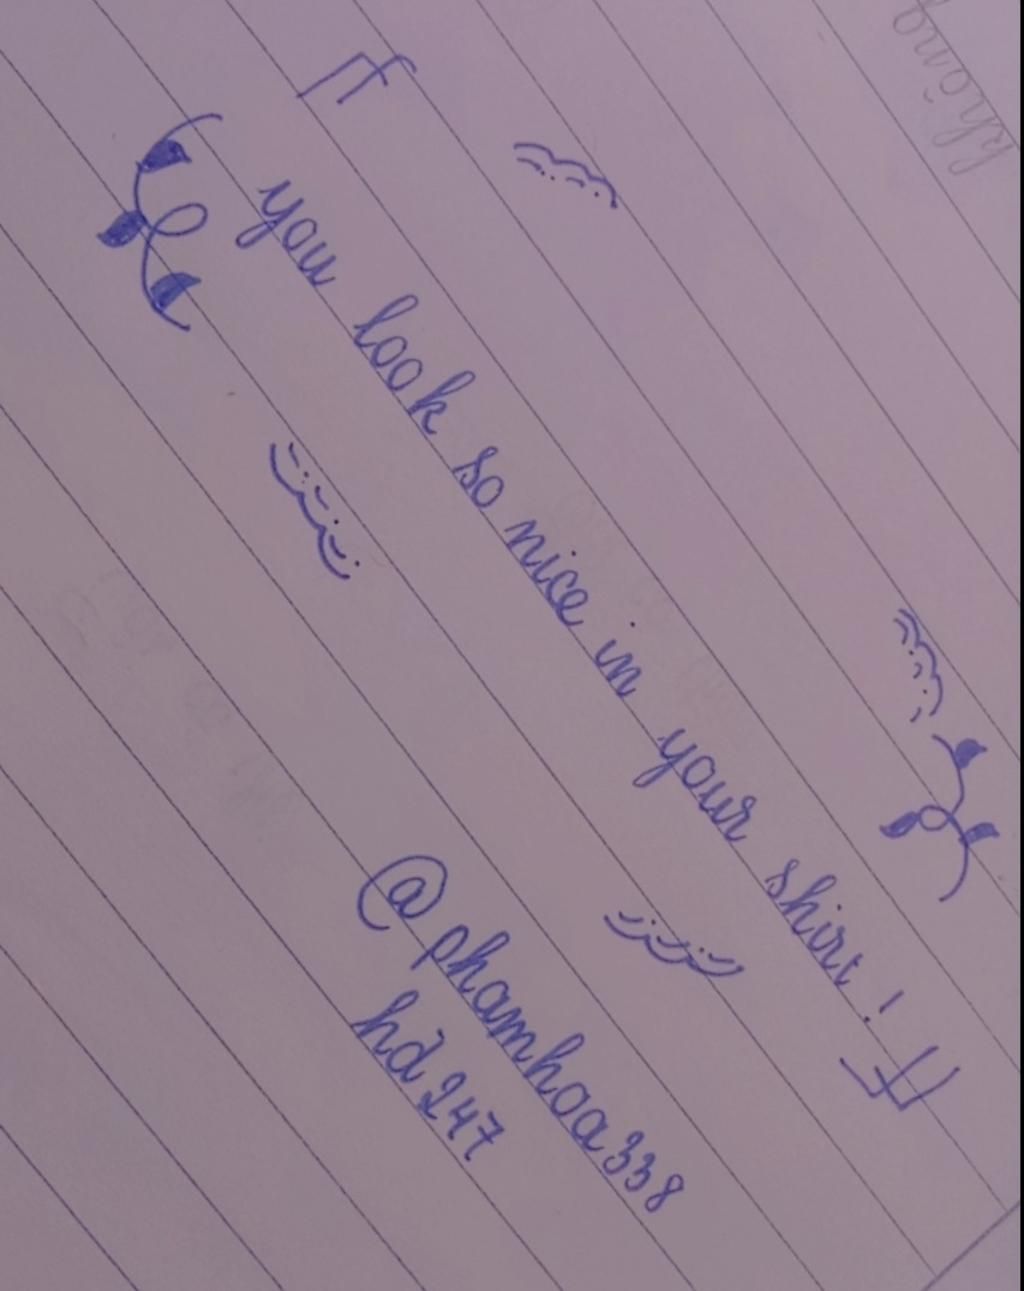 không
you look so nice in your shirt!
@phamhoa338
hd247